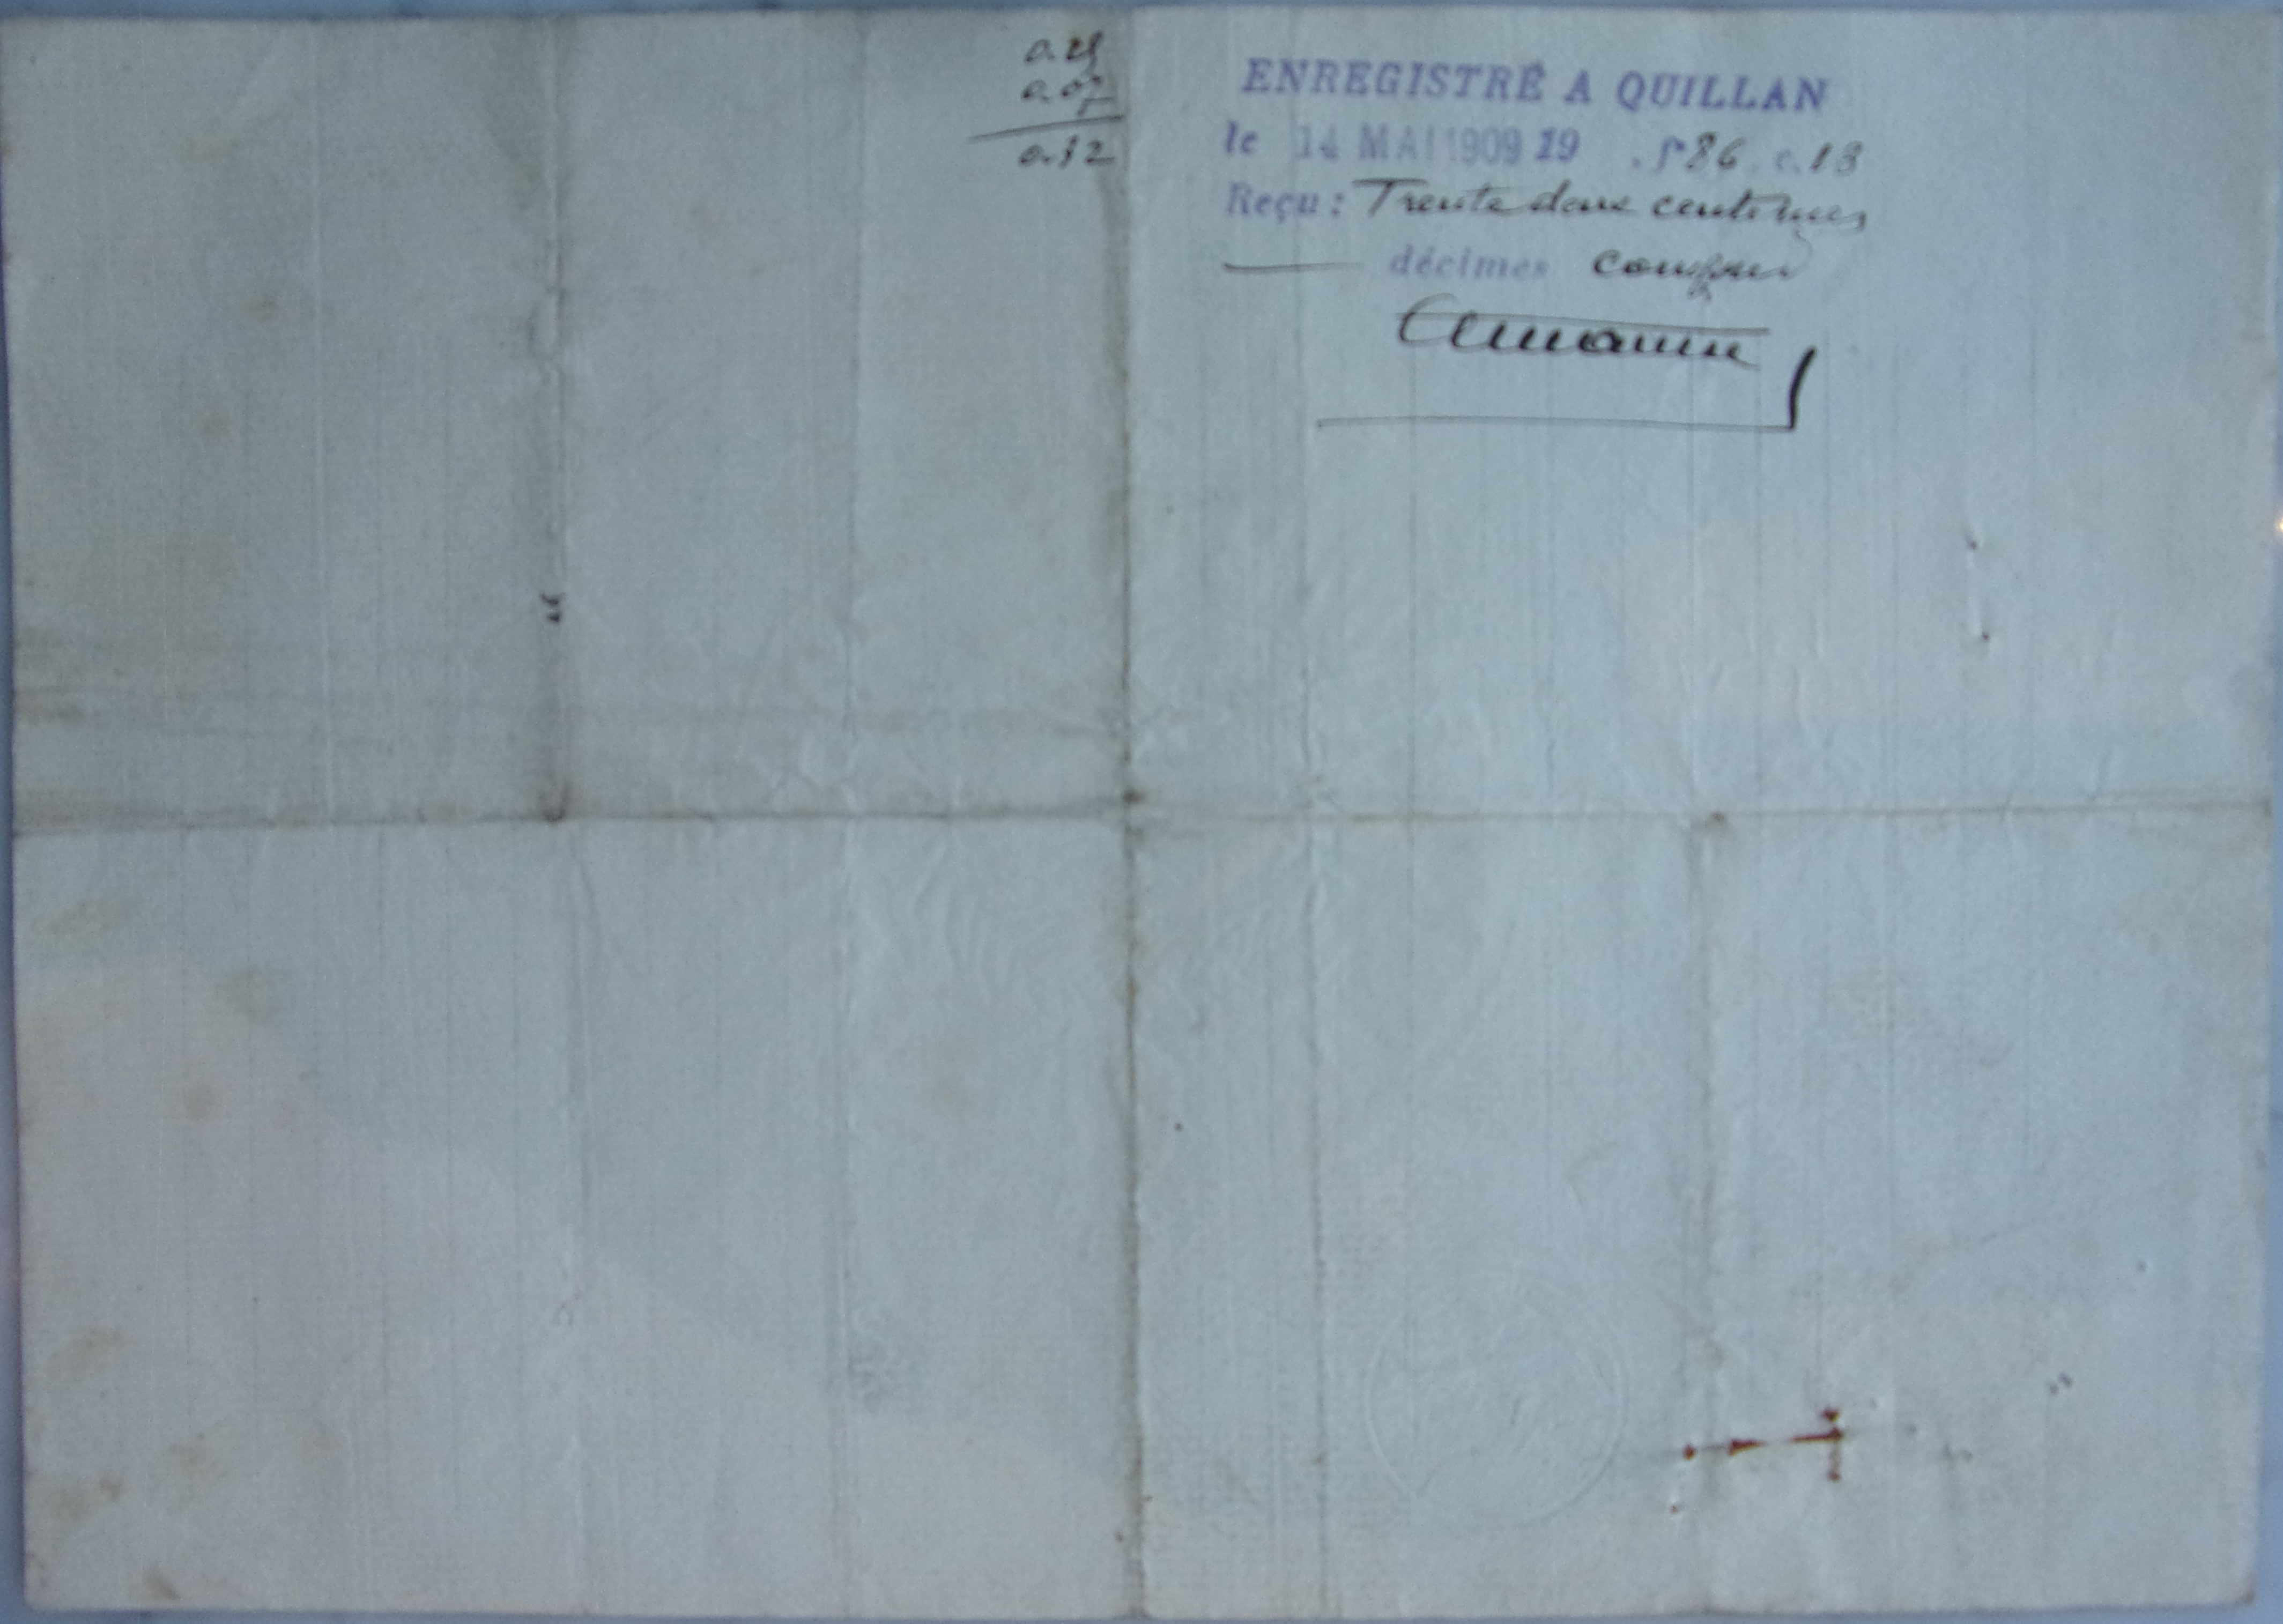 0.25
0.07
0.32
ENREGISTRÉ A QUILLAN
le 14 MAI 1909 19 . f° 86. c. 13
Reçu : Trente deux centimes
décimes compris